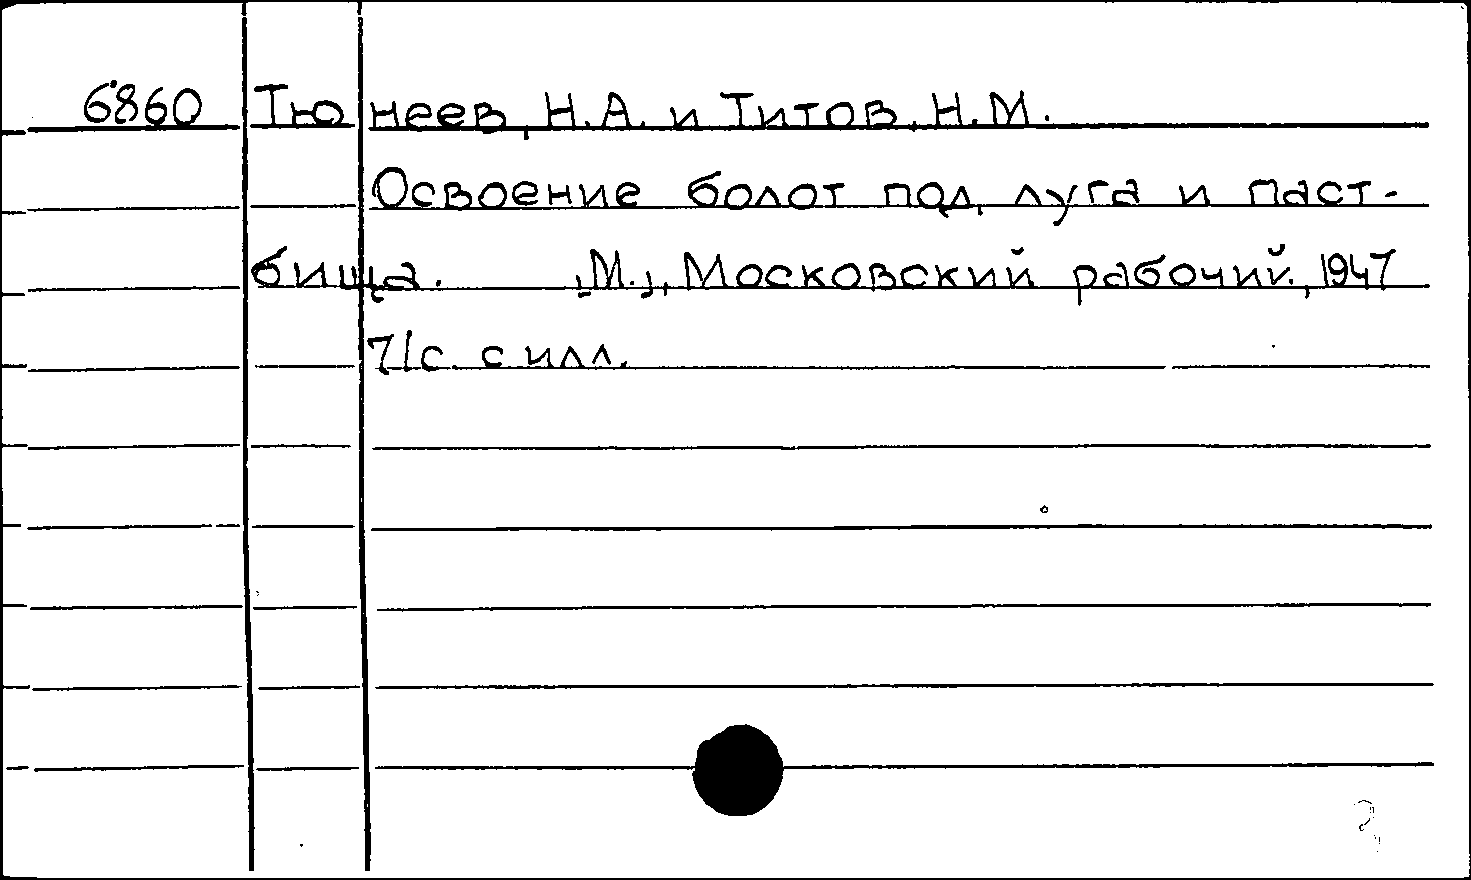 6860 Тюнеев, Н.А. и Титов, Н.М.
Освоение болот под луга и паст-
бища. [М.], Московский рабочий, 1947
71с. с илл.